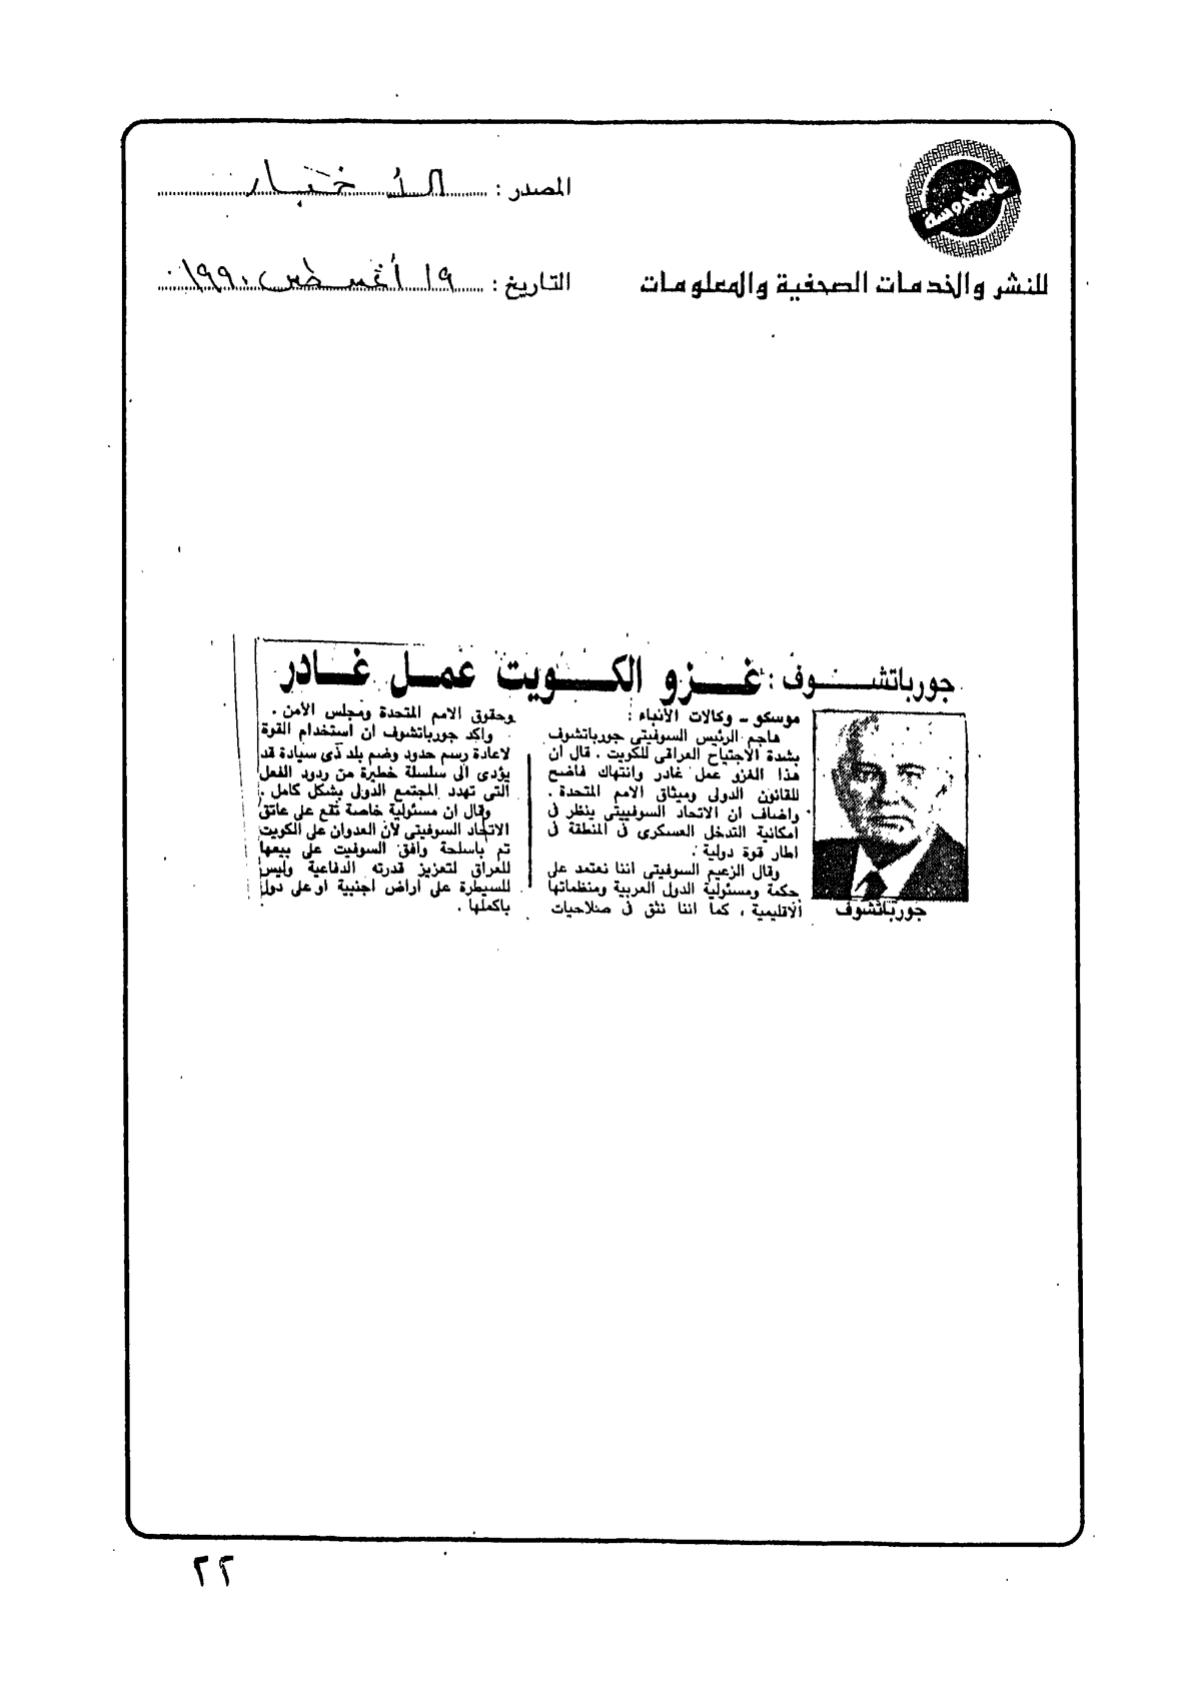 المحروسة
للنشر والخدمات الصحفية والمعلومات
المصدر : الأخبار
التاريخ : ١٩ أغسطس ١٩٩٠
جورباتشوف : غزو الكويت عمل غادر
موسكو - وكالات الأنباء :
هاجم الرئيس السوفيتى جورباتشوف
بشدة الاجتياح العراقى للكويت . قال ان
هذا الغزو عمل غادر وانتهاك فاضح
للقانون الدولى وميثاق الامم المتحدة .
واضاف ان الاتحاد السوفييتى ينظر فى
امكانية التدخل العسكرى فى المنطقة فى
اطار قوة دولية .
وقال الزعيم السوفيتى اننا نعتمد على
حكمة ومسئولية الدول العربية ومنظماتها
الاقليمية ، كما اننا نثق فى صلاحيات
وحقوق الامم المتحدة ومجلس الأمن .
واكد جورباتشوف ان استخدام القوة
لاعادة رسم حدود وضم بلد ذى سيادة قد
يؤدى الى سلسلة خطيرة من ردود الفعل
التى تهدد المجتمع الدولى بشكل كامل .
وقال ان مسئولية خاصة تقع على عاتق
الاتحاد السوفيتى لأن العدوان على الكويت
تم باسلحة وافق السوفيت على بيعها
للعراق لتعزيز قدرته الدفاعية وليس
للسيطرة على اراض اجنبية او على دول
باكملها .
جورباتشوف
٢٢